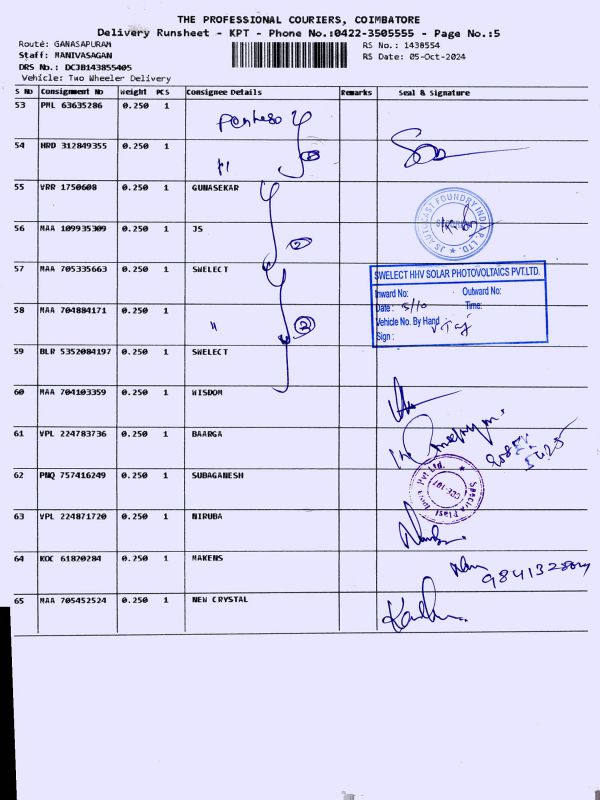 THE PROFESSIONAL COURIERS, COIMBATORE
Delivery Runsheet - KPT - Phone No.:0422-3505555 - Page No.:5
Route: GANASAPURAM
Staff: MANIVASAGAN
DRS No.: DCJB143855405
Vehicle: Two Wheeler Delivery
RS No.: 1438554
RS Date: 05-Oct-2024
S No Consignment No Weight PCS Consignee Details Remarks Seal & Signature
53 PML 63635286 0.250 1
54 HRD 312849355 0.250 1
55 VRR 1750608 0.250 1 GUNASEKAR
56 MAA 109935309 0.250 1 JS 2
JS AUTOCAST FOUNDRY INDIA P. LTD.
57 MAA 705335663 0.250 1 SWELECT
SWELECT HHV SOLAR PHOTOVOLTAICS PVT.LTD.
Inward No: Outward No:
Date : 5/10 Time:
Vehicle No. By Hand
Sign :
58 MAA 704884171 0.250 1 " 2
59 BLR 5352084197 0.250 1 SWELECT
60 MAA 704103359 0.250 1 WISDOM
61 VPL 224783736 0.250 1 BAARGA
62 PNQ 757416249 0.250 1 SUBAGANESH
63 VPL 224871720 0.250 1 NIRUBA
64 KOC 61820284 0.250 1 MAKENS
65 MAA 705452524 0.250 1 NEW CRYSTAL